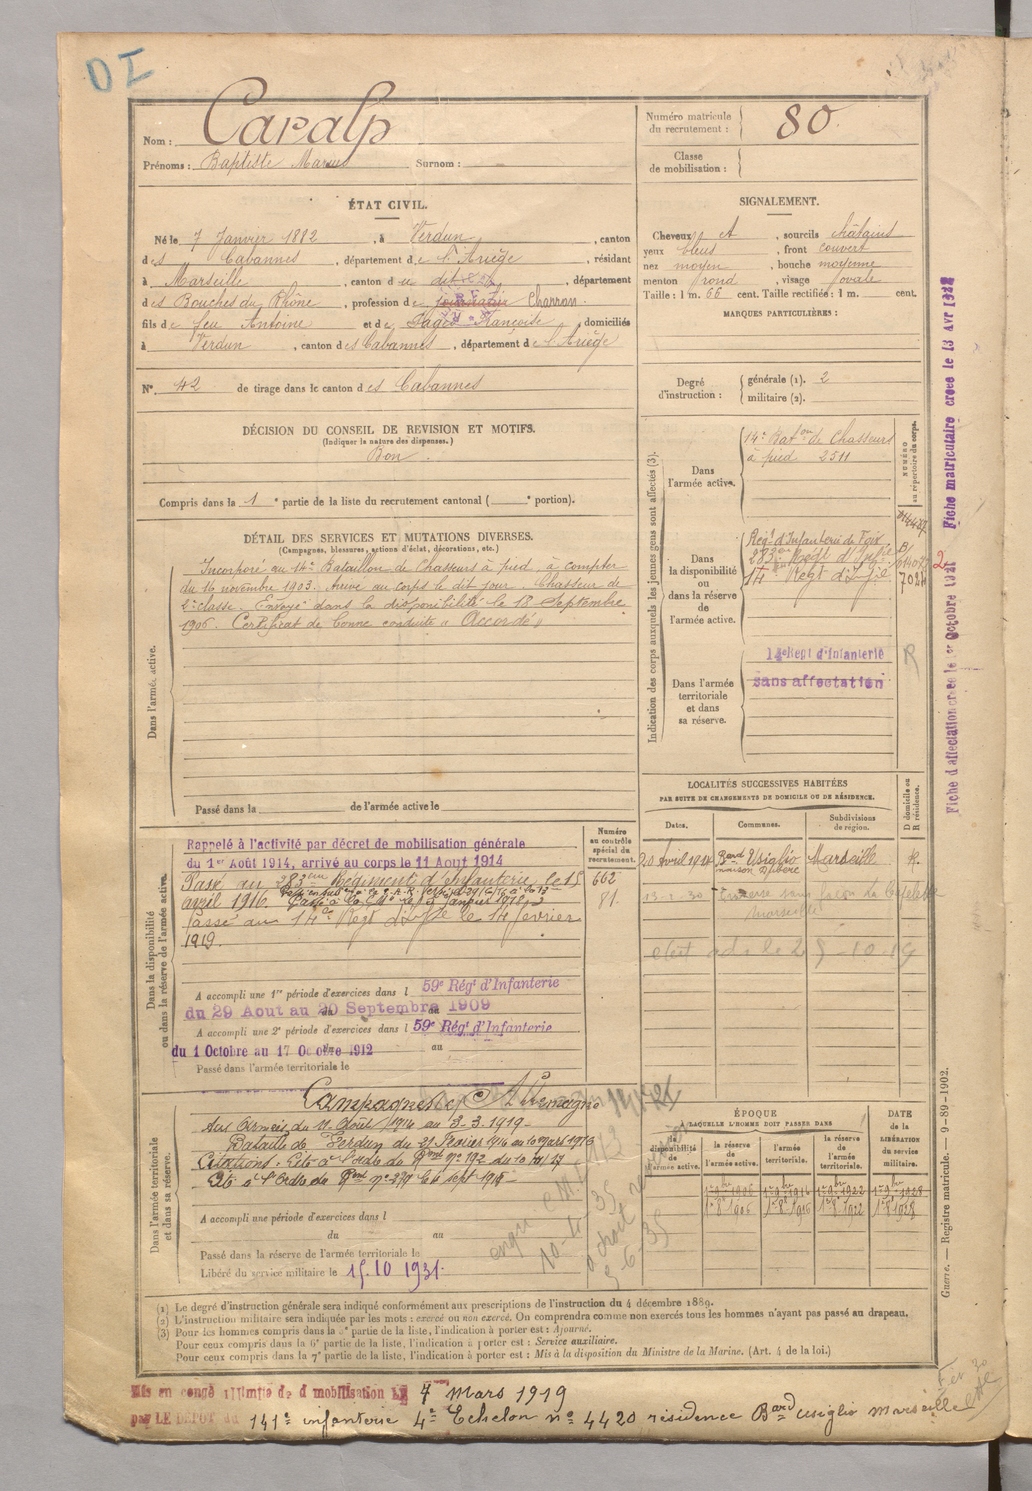 OI
Nom : Caralp
Prénoms : Baptiste Marius Surnom : —
Numéro matricule du recrutement : 80
Classe de mobilisation :
ÉTAT CIVIL.
Né le 7 Janvier 1882, à Verdun, canton
des Cabannes, département de l'Ariège, résidant
à Marseille, canton du dit, département
des Bouches du Rhône, profession de journalier Charron.
fils de feu Antoine et de Pagès Françoise, domiciliés
à Verdun, canton des Cabannes, département de l'Ariège
N° 42 de tirage dans le canton des Cabannes
SIGNALEMENT.
Cheveux et, sourcils châtains
yeux bleus, front couvert
nez moyen, bouche moyenne
menton rond, visage ovale
Taille : 1 m. 66 cent. Taille rectifiée : 1 m. cent.
MARQUES PARTICULIÈRES :
Degré d'instruction : générale (1). 2
militaire (2).
DÉCISION DU CONSEIL DE REVISION ET MOTIFS.
(Indiquer la nature des dispenses.)
Bon.
Compris dans la 1e partie de la liste du recrutement cantonal ( e portion).
DÉTAIL DES SERVICES ET MUTATIONS DIVERSES.
(Campagnes, blessures, actions d'éclat, décorations, etc.)
Dans l'armée active.
Incorporé au 14e Bataillon de Chasseurs à pied, à compter
du 16 novembre 1903. Arrivé au corps le dit jour. Chasseur de
2e classe. Envoyé dans la disponibilité le 18 Septembre
1906. Certificat de bonne conduite « Accordé »
Passé dans la de l'armée active le
Indication des corps auxquels les jeunes gens sont affectés (3).
NUMÉRO au répertoire du corps.
Dans l'armée active.
14e Baton de Chasseurs
à pied 2511
Dans la disponibilité ou dans la réserve de l'armée active.
Régt d'Infanterie de Foix
283eme Régt d'Infie
14e Régt d'Infie
Dans l'armée territoriale et dans sa réserve.
14e Régt d'Infanterie
Sans affectation
R
Fiche matriculaire créée le 13 Avr 1922
Fiche d'affectation créée le 1er Octobre 1921
LOCALITÉS SUCCESSIVES HABITÉES
PAR SUITE DE CHANGEMENTS DE DOMICILE OU DE RÉSIDENCE.
Dates. Communes. Subdivisions de région. D domicile ou R résidence.
Bard Usiglio Marseille R.
Marseille
Dans la disponibilité ou dans la réserve de l'armée active.
Numéro au contrôle spécial du recrutement.
602
81.
Rappelé à l'activité par décret de mobilisation générale
du 1er Août 1914, arrivé au corps le 11 Aout 1914
Passé au 283eme Régiment d'Infanterie le 15
avril 1916.
Passé au 14e Régt d'Infie le 14 février
1919.
A accompli une 1re période d'exercices dans l 59e Régt d'Infanterie
du 29 Aout au 20 Septembre 1909
A accompli une 2e période d'exercices dans l 59e Régt d'Infanterie
du 1 Octobre au 17 Octobre 1912
Passé dans l'armée territoriale le
Dans l'armée territoriale et dans sa réserve.
Campagnes c/ Allemagne
Aux Armées du 11 Août 1914 au 3-3-1919-
Bataille de Verdun du 21 Février 1916 au 10 mars 1916
Citations. Cité à l'ordre du Rgmt n° 192 du
Cité à l'Ordre du Rgmt n° 279 le 4 sept 1918-
A accompli une période d'exercices dans l
du au
Passé dans la réserve de l'armée territoriale le
Libéré du service militaire le 15.10 1931.
ÉPOQUE
À LAQUELLE L'HOMME DOIT PASSER DANS
la disponibilité de l'armée active. la réserve de l'armée active. l'armée territoriale. la réserve de l'armée territoriale. DATE de la LIBÉRATION du service militaire.
1er 9bre 1906 1er 9bre 1916 1er 9bre 1922 1er 9bre 1928
1er 8bre 1906 1er 8bre 1916 1er 8bre 1922 1er 8bre 1928
(1) Le degré d'instruction générale sera indiqué conformément aux prescriptions de l'instruction du 4 décembre 1889.
(2) L'instruction militaire sera indiquée par les mots : exercé ou non exercé. On comprendra comme non exercés tous les hommes n'ayant pas passé au drapeau.
(3) Pour les hommes compris dans la 5e partie de la liste, l'indication à porter est : Ajourné.
Pour ceux compris dans la 6e partie de la liste, l'indication à porter est : Service auxiliaire.
Pour ceux compris dans la 7e partie de la liste, l'indication à porter est : Mis à la disposition du Ministre de la Marine. (Art. 4 de la loi.)
Guerre. — Registre matricule. — 9-89-1902.
Mis en congé illimité de démobilisation LE 7 Mars 1919
par LE DÉPOT du 141e infanterie 4e Echelon n° 4420 résidence Bard usiglio Marseille